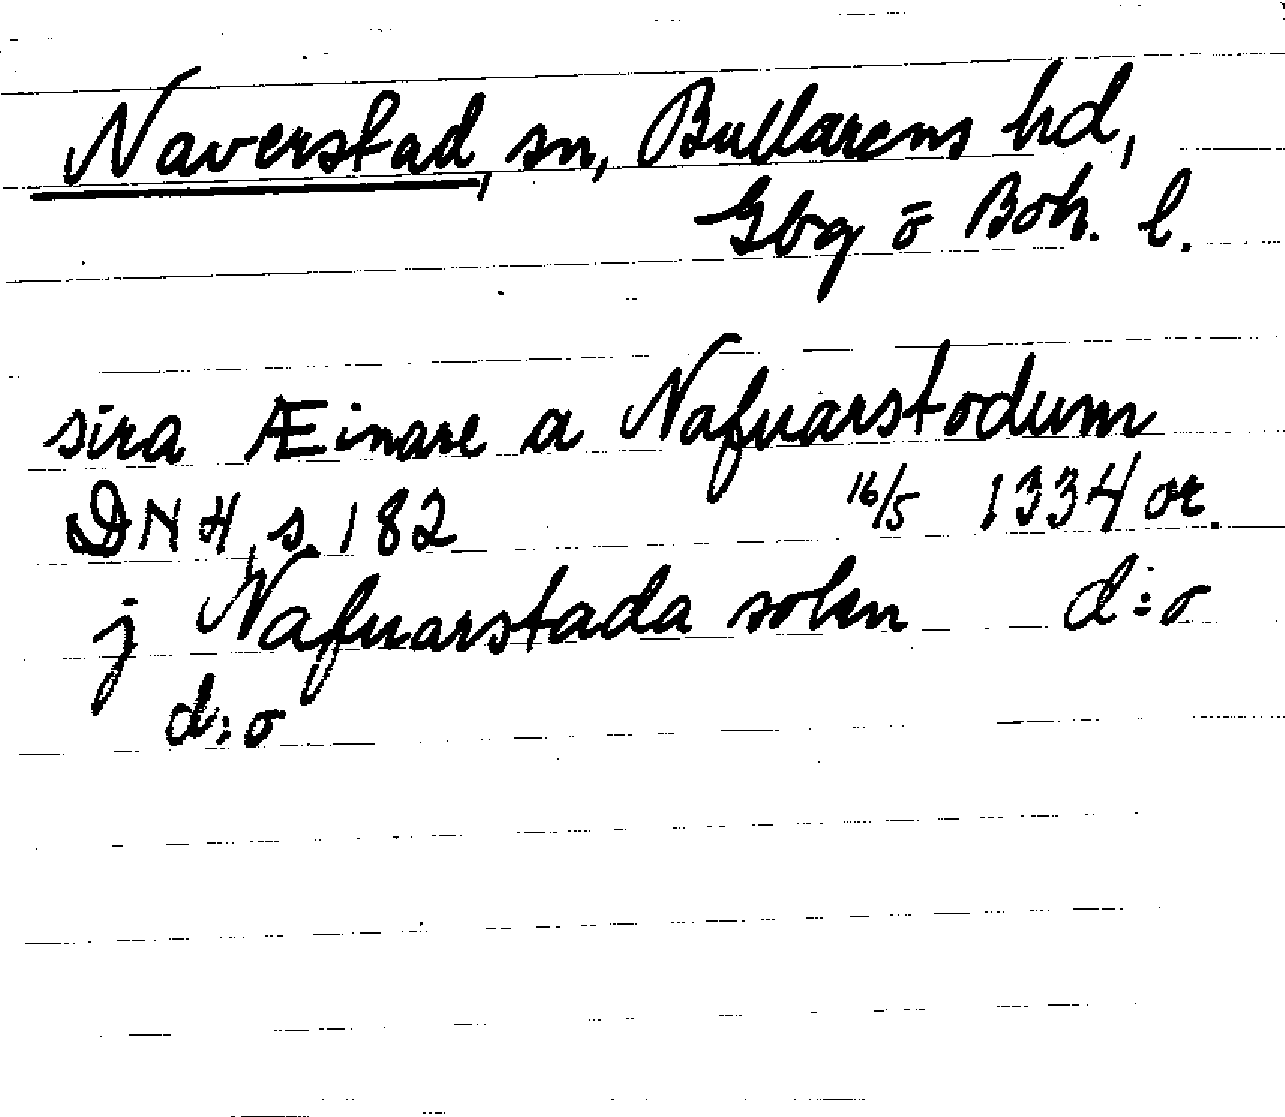 Naverstad, sn, Bullarens hd,
Gbg o Boh. l.
sira Æinare a Nafuarstodum
DN 4, s. 182 16/5 1334 or.
j Nafuarstada sokn d:o
d:o